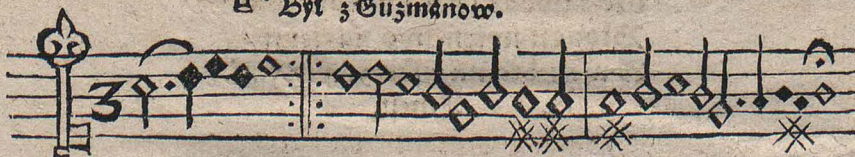 Był z Guzmanow.
3